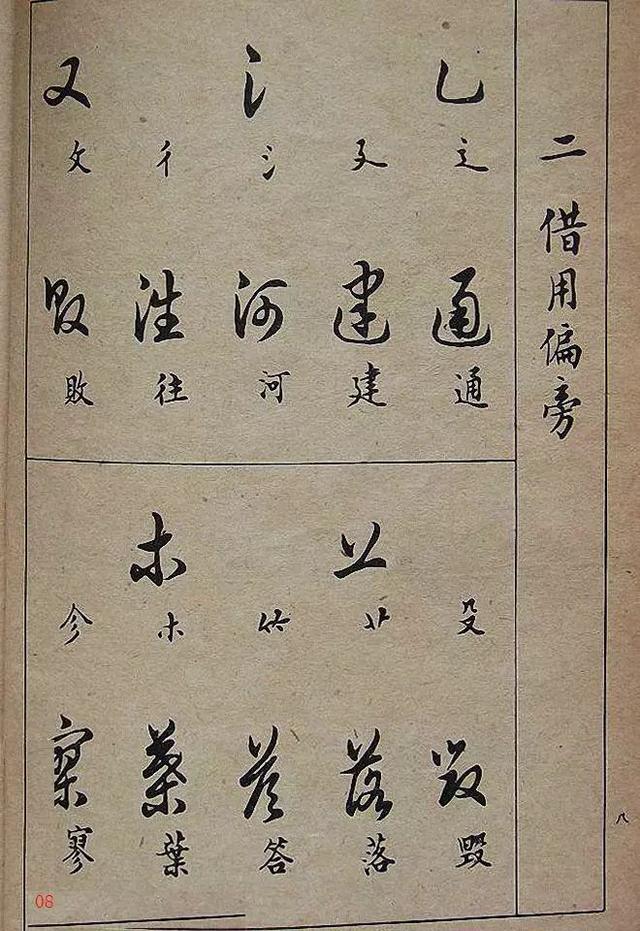 二 借用偏旁
辶
通
通
廴
建
建
氵
氵
河
河
彳
往
往
又
攵
败
敗
殳
毁
毀
艹
落
落
⺮
答
答
木
木
葉
葉
寥
寥
八
08